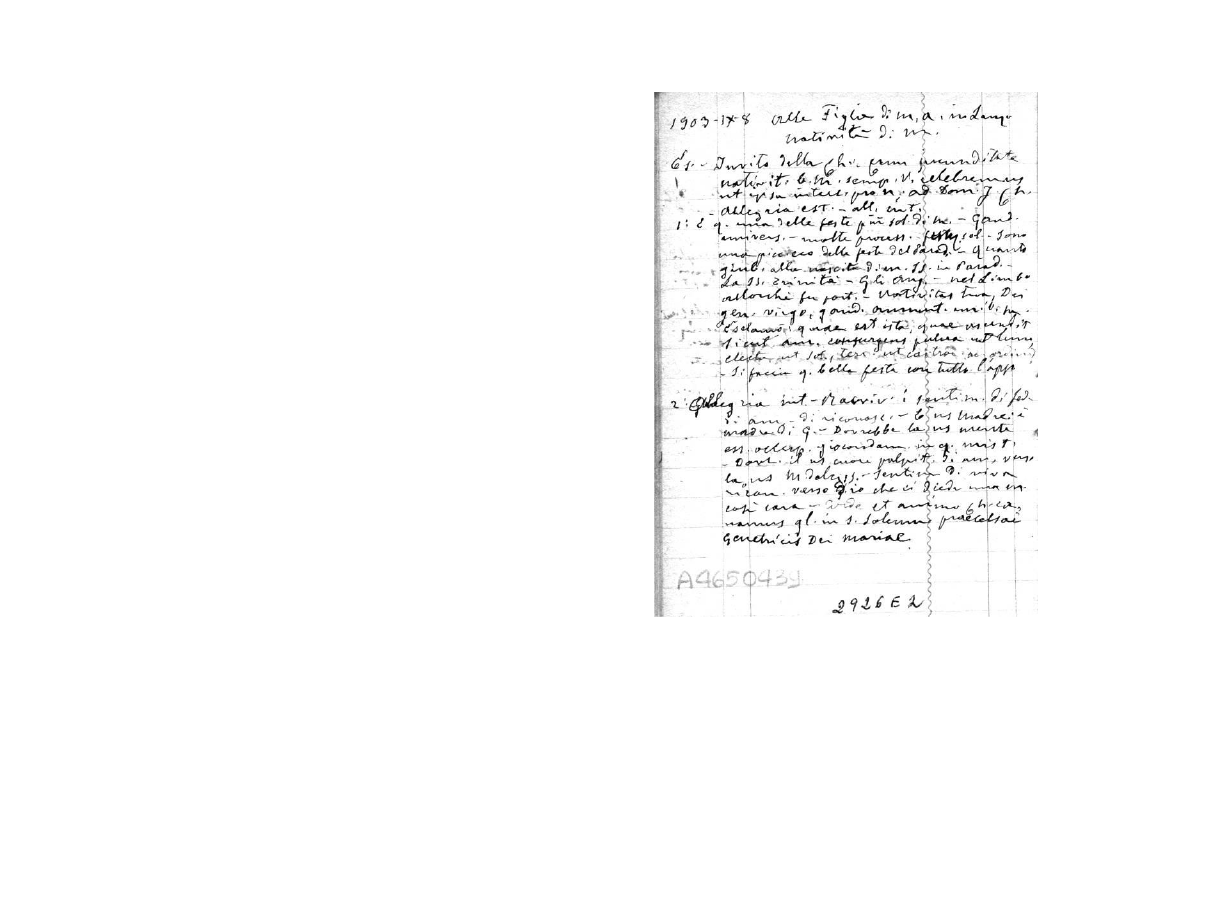 1903-IX-8 alle Figlie di M. A. in Lanzo
Natività di M.
Es. - Invito della Ch. cum jucunditate
nativit. b. M. semp. V. celebremus
ut ipsa interc. pro n. ad Dom. J. Ch.
- Allegria est. - all. int.
1: È q. una delle feste più sol. di M. - Gaud.
univers. - molte process. - sol. - Sono
una picc. eco della festa del Parad. - quanto
giub. alla nascita di M. SS. in Parad. -
La SS. Trinità - Gli Ang. - nel Limbo
allorchè fu port. - Nativitas tua, Dei
gen. virgo, gaud. annunt. univ. m.
Esclamò: quae est ista, quae ascendit
sicut aur. consurgens pulcra ut luna,
electa ut sol, terr. ut castror. ac. ordin.?
- Si faccia q. bella festa con tutto l'app.
2: Allegria int. - Ravviv. i sentim. di fed.
di am. - di riconosc. - È ns Madre: è
madre di G. - Dovrebbe la ns mente
ess. giocondam. in q. mist.
- Dovr. il ns cuore palpit. di am. verso
la ns M. dolciss. - Sentim. di viva
ricon. verso Dio che ci diede una m.
così cara - Corde et animo Ch. ca-
namus gl. in s. solemn. praecelsae
Genetricis Dei Mariae
A4650439
2926E2